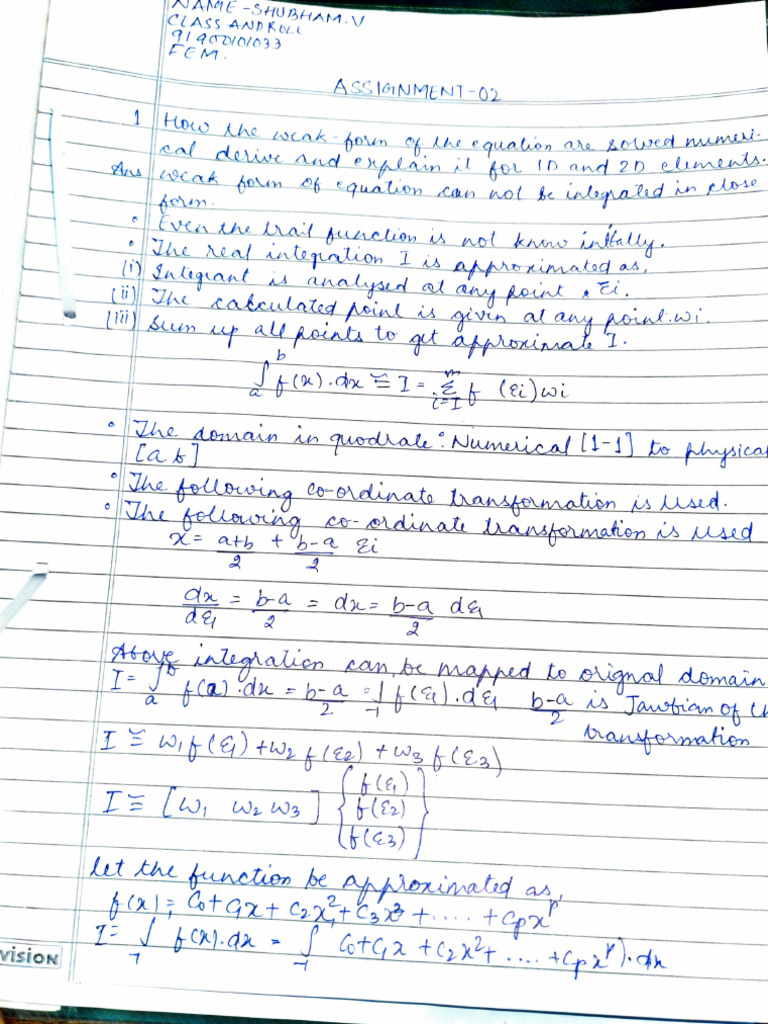 NAME - SHUBHAM.V
CLASS AND ROLL
91900101033
FEM.
ASSIGNMENT-02
1 How the weak-form of the equation are solved numeri-
cal derive and explain it for 1D and 2D elements.
Ans weak form of equation can not be integrated in close
form.
• Even the trail function is not know initally.
• The real integration I is approximated as,
(i) Integrant is analysed at any point, Ei.
(ii) The calculated point is given at any point. wi.
(iii) Sum up all points to get approximate I.
∫ₐᵇ f(x).dx ≅ I = Σᵢ₌₁ᵐ f (εi) wi
• The domain in quodrate: Numerical [1-1] to physical
[a b]
• The following co-ordinate transformation is used.
• The following co-ordinate transformation is used
x = a+b/2 + b-a/2 εi
dx/dε₁ = b-a/2 = dx = b-a/2 dε₁
Above integration can be mapped to orignal domain
I = ∫ₐᵇ f(x).dx = b-a/2 = ∫₋₁ f(ε₁).dε₁ b-a/2 is of
transformation
I ≅ w₁f(ε₁) + w₂f(ε₂) + w₃f(ε₃)
I ≅ [w₁ w₂ w₃] {f(ε₁)
f(ε₂)
f(ε₃)}
let the function be approximated as,
f(x) = C₀+C₁x+C₂x²+C₃x³+.....+Cpxᵖ
I = ∫₋₁ f(x).dx = ∫₋₁ C₀+C₁x+C₂x²+....+Cpxᵖ).dx
vision